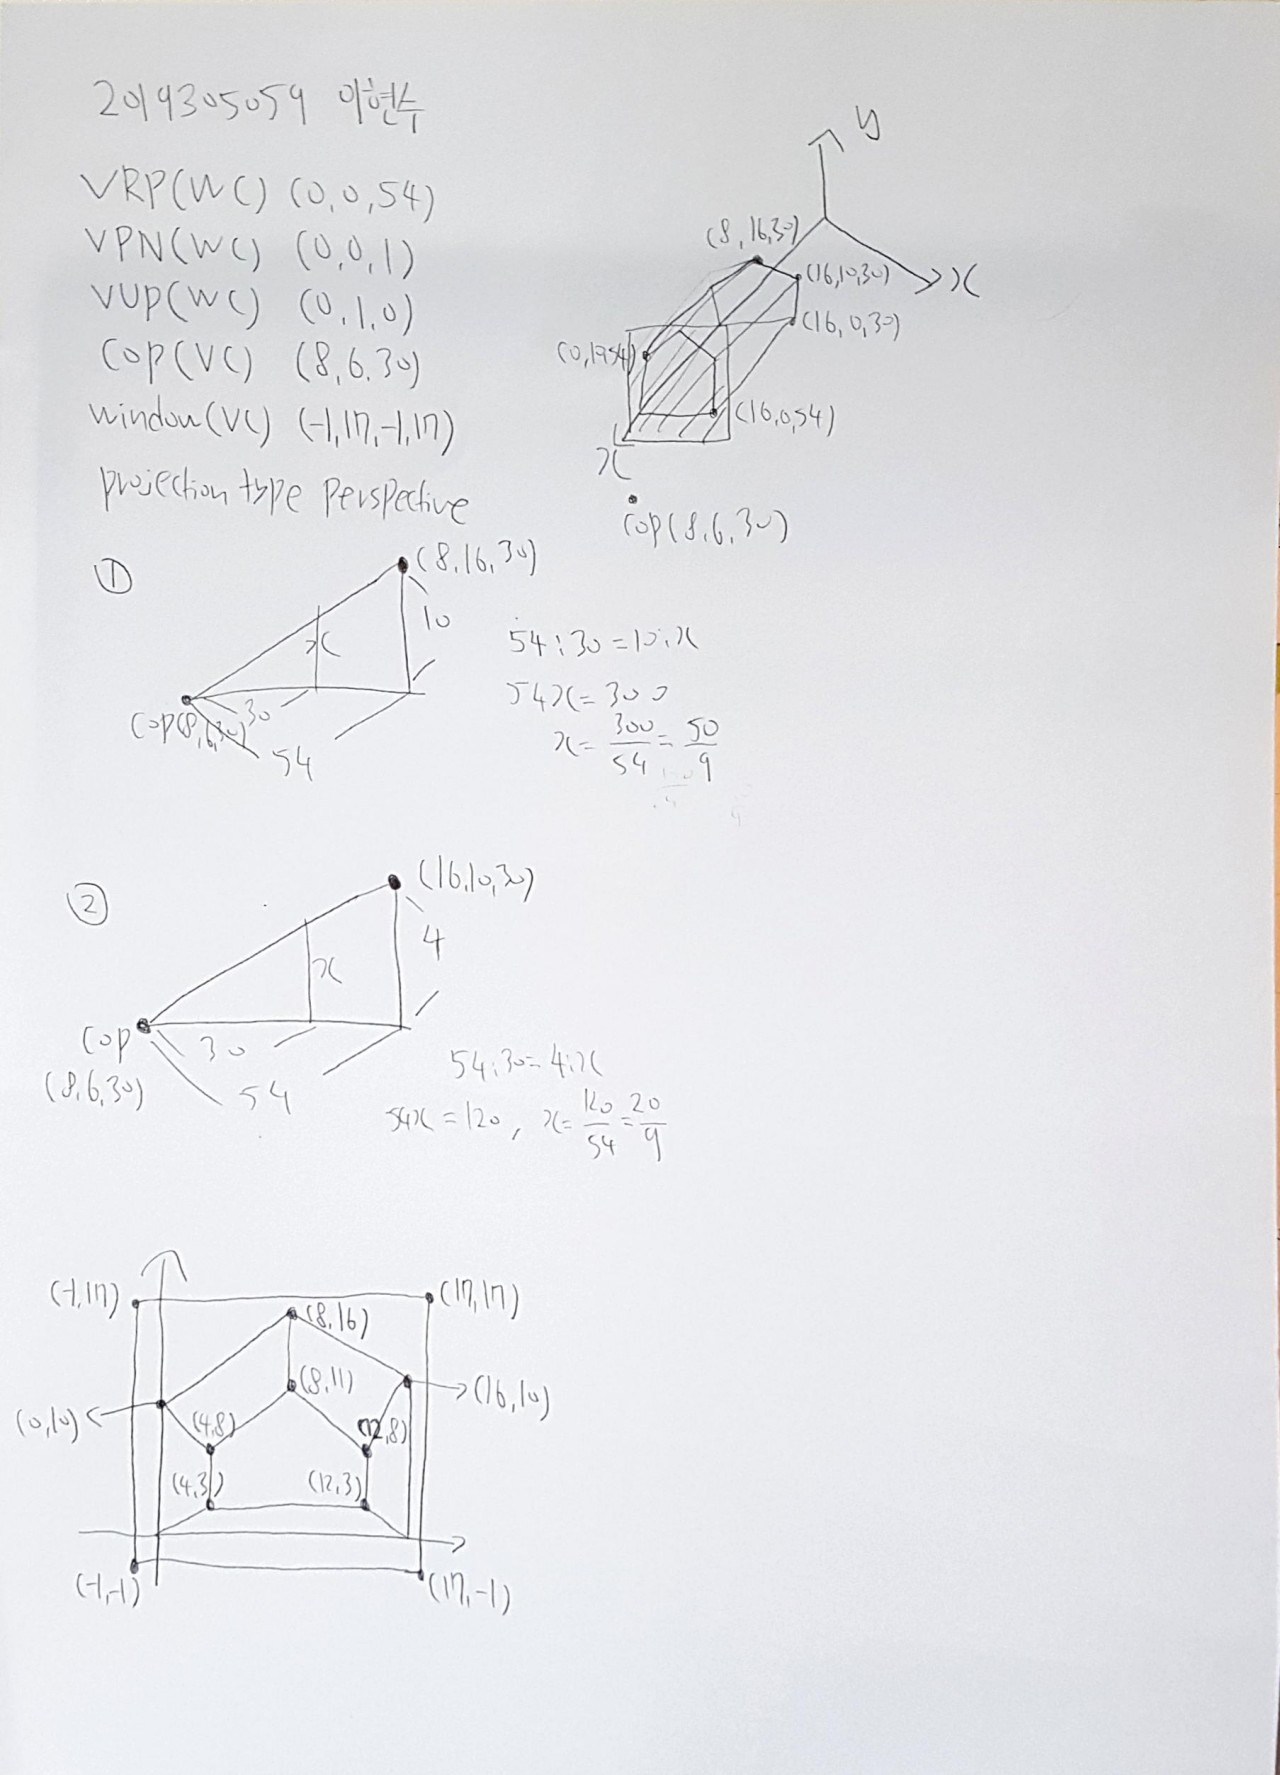 2019305059 이현수
VRP(WC) (0,0,54)
VPN(WC) (0,0,1)
VUP(WC) (0,1,0)
COP(VC) (8,6,30)
window(VC) (-1,17,-1,17)
projection type perspective
y
(8,16,30)
(16,10,30)
x
(16,0,30)
(0,1954)
(16,0,54)
x
COP(8,6,30)
①
(8,16,30)
10
x
30
COP(8,6,30)
54
54:30=10:x
54x=300
x=300/54=50/9
②
(16,10,30)
4
x
COP
30
(8,6,30)
54
54:30=4:x
54x=120, x=120/54=20/9
(-1,17)
(17,17)
(8,16)
(8,11)
(16,10)
(0,10)
(4,8)
(12,8)
(4,3)
(12,3)
(-1,-1)
(17,-1)